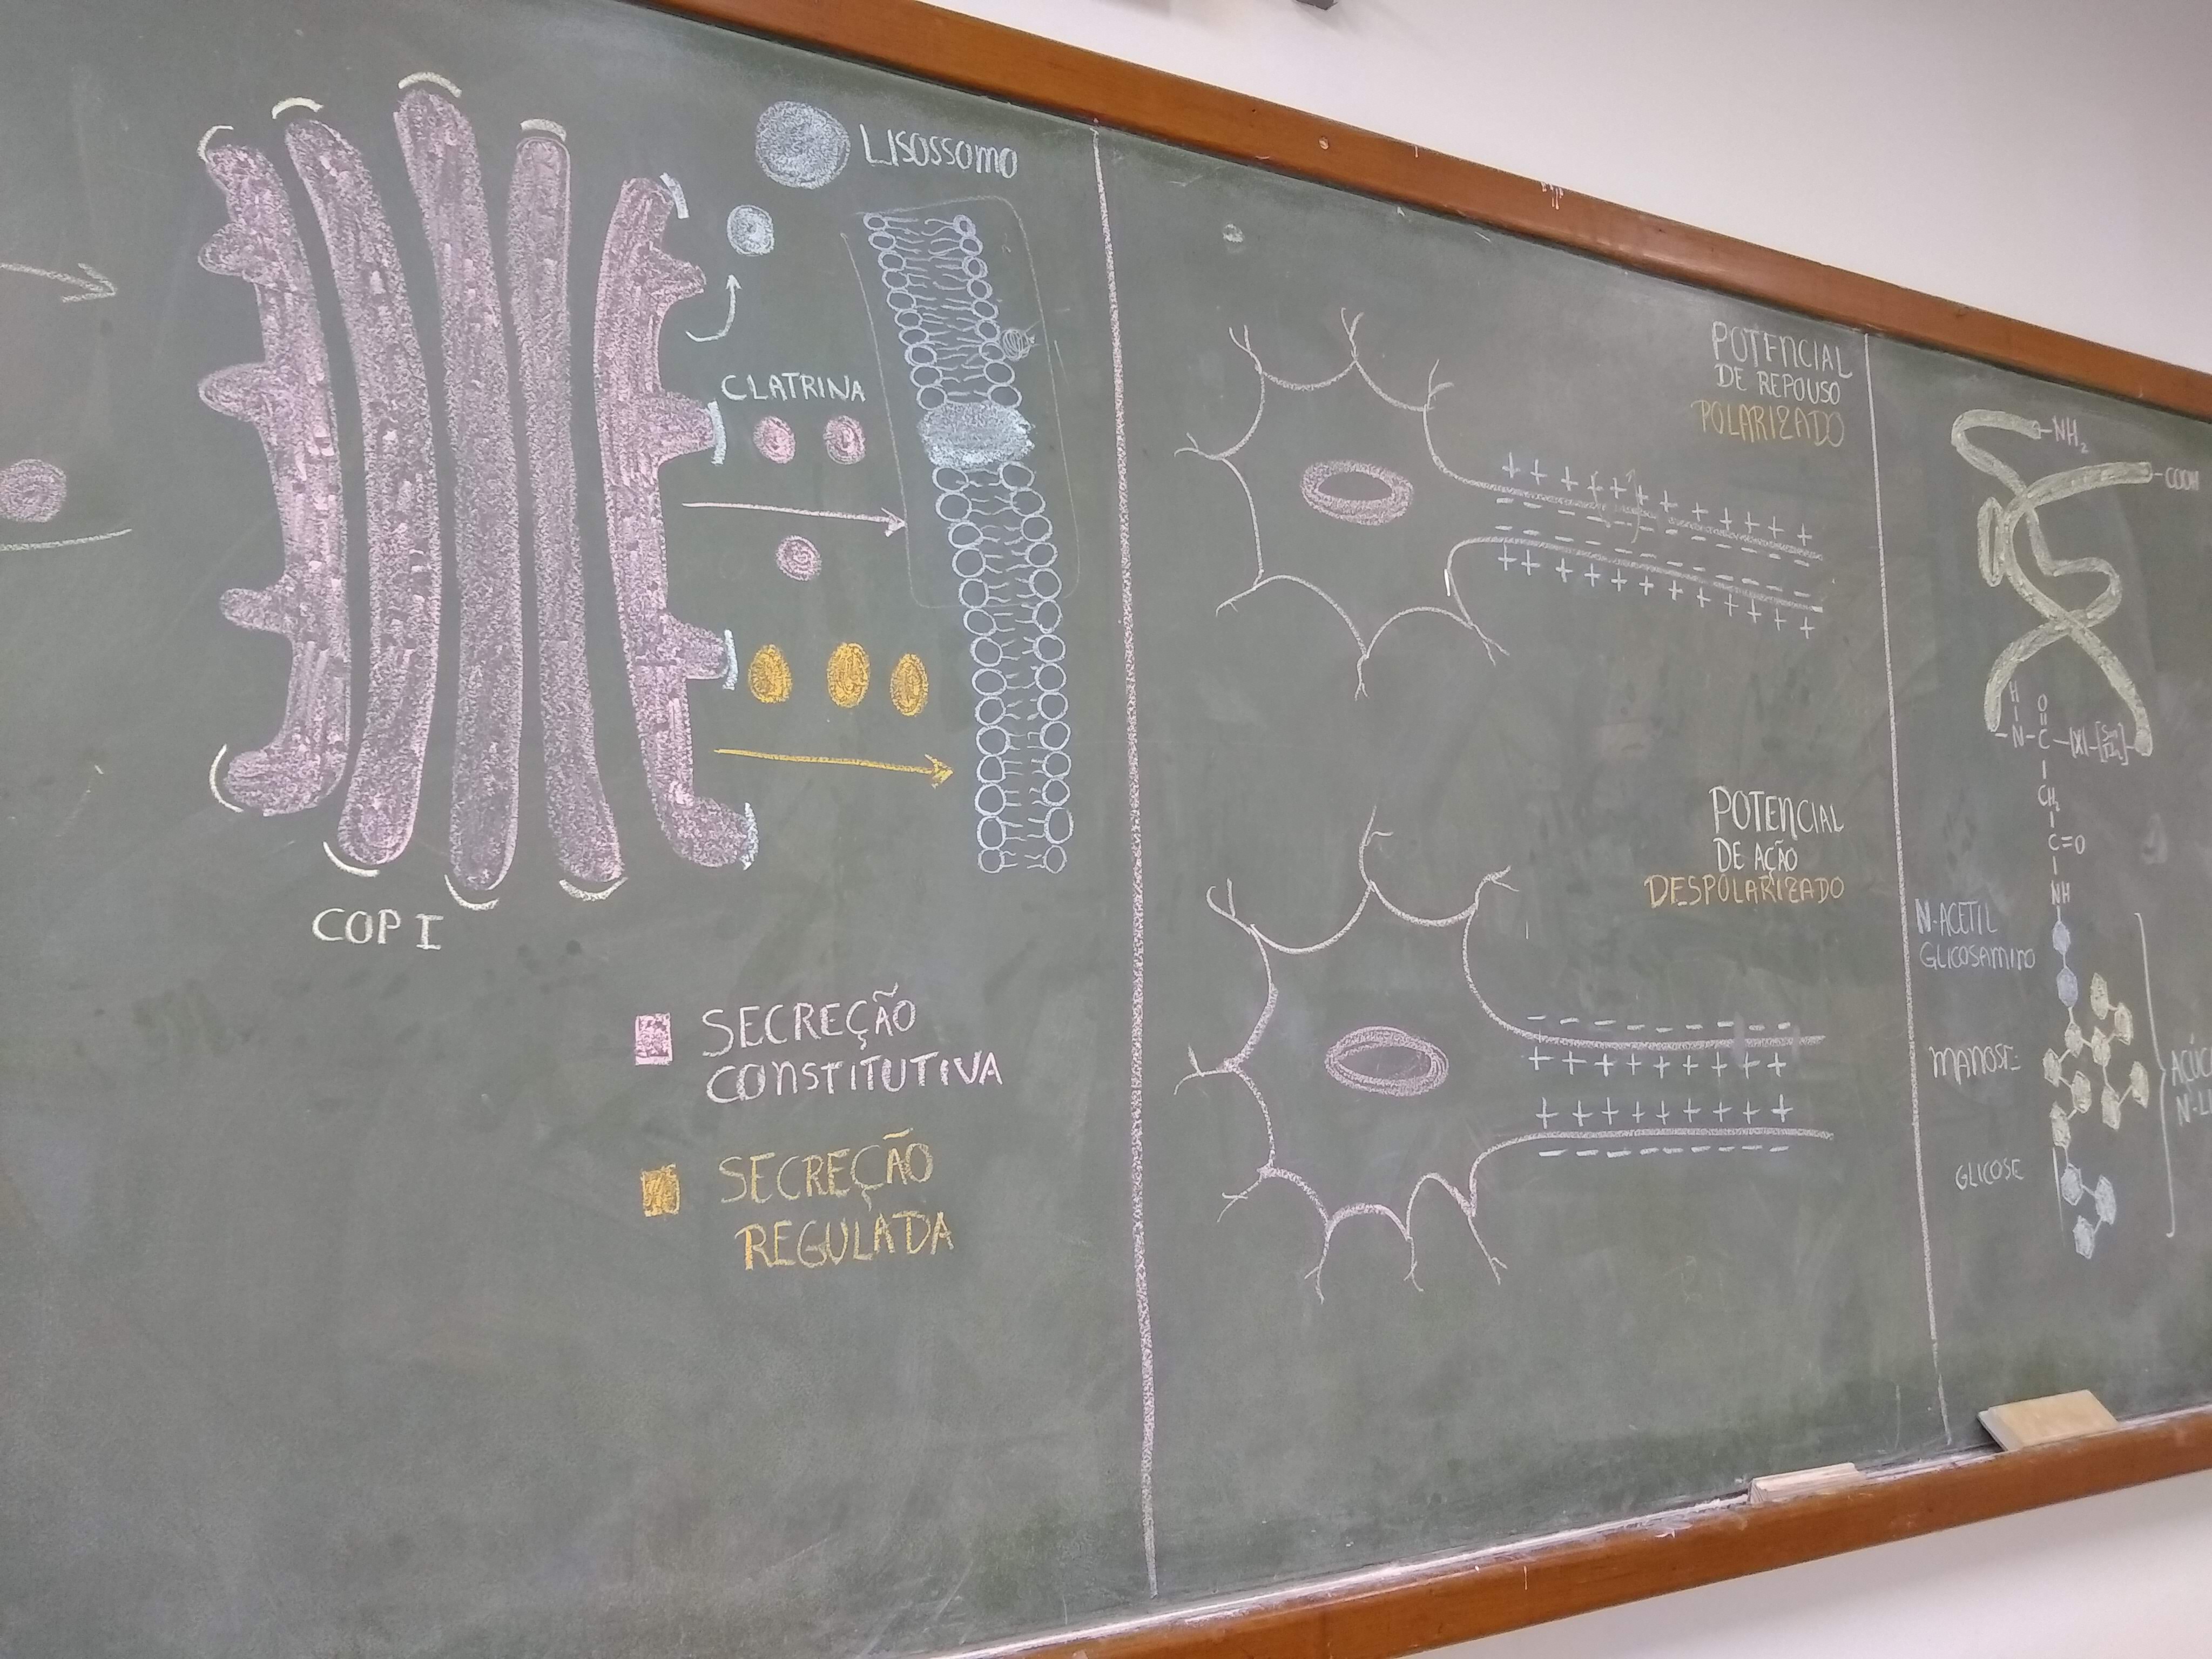 LISOSSOMO
CLATRINA
COP I
SECREÇÃO
CONSTITUTIVA
SECREÇÃO
REGULADA
POTENCIAL
DE REPOUSO
POLARIZADO
+ + + + + + + + + + +
- - - - - - - - - - -
- - - - - - - - - -
+ + + + + + + + + + +
POTENCIAL
DE AÇÃO
DESPOLARIZADO
- - - - - - - - - -
+ + + + + + + + +
+ + + + + + + + +
- - - - - - - - - -
-NH2
-COOH
H
O
-N-C-[X]-
CH2
C=O
NH
N-ACETIL
GLICOSAMINO
MANOSE
GLICOSE